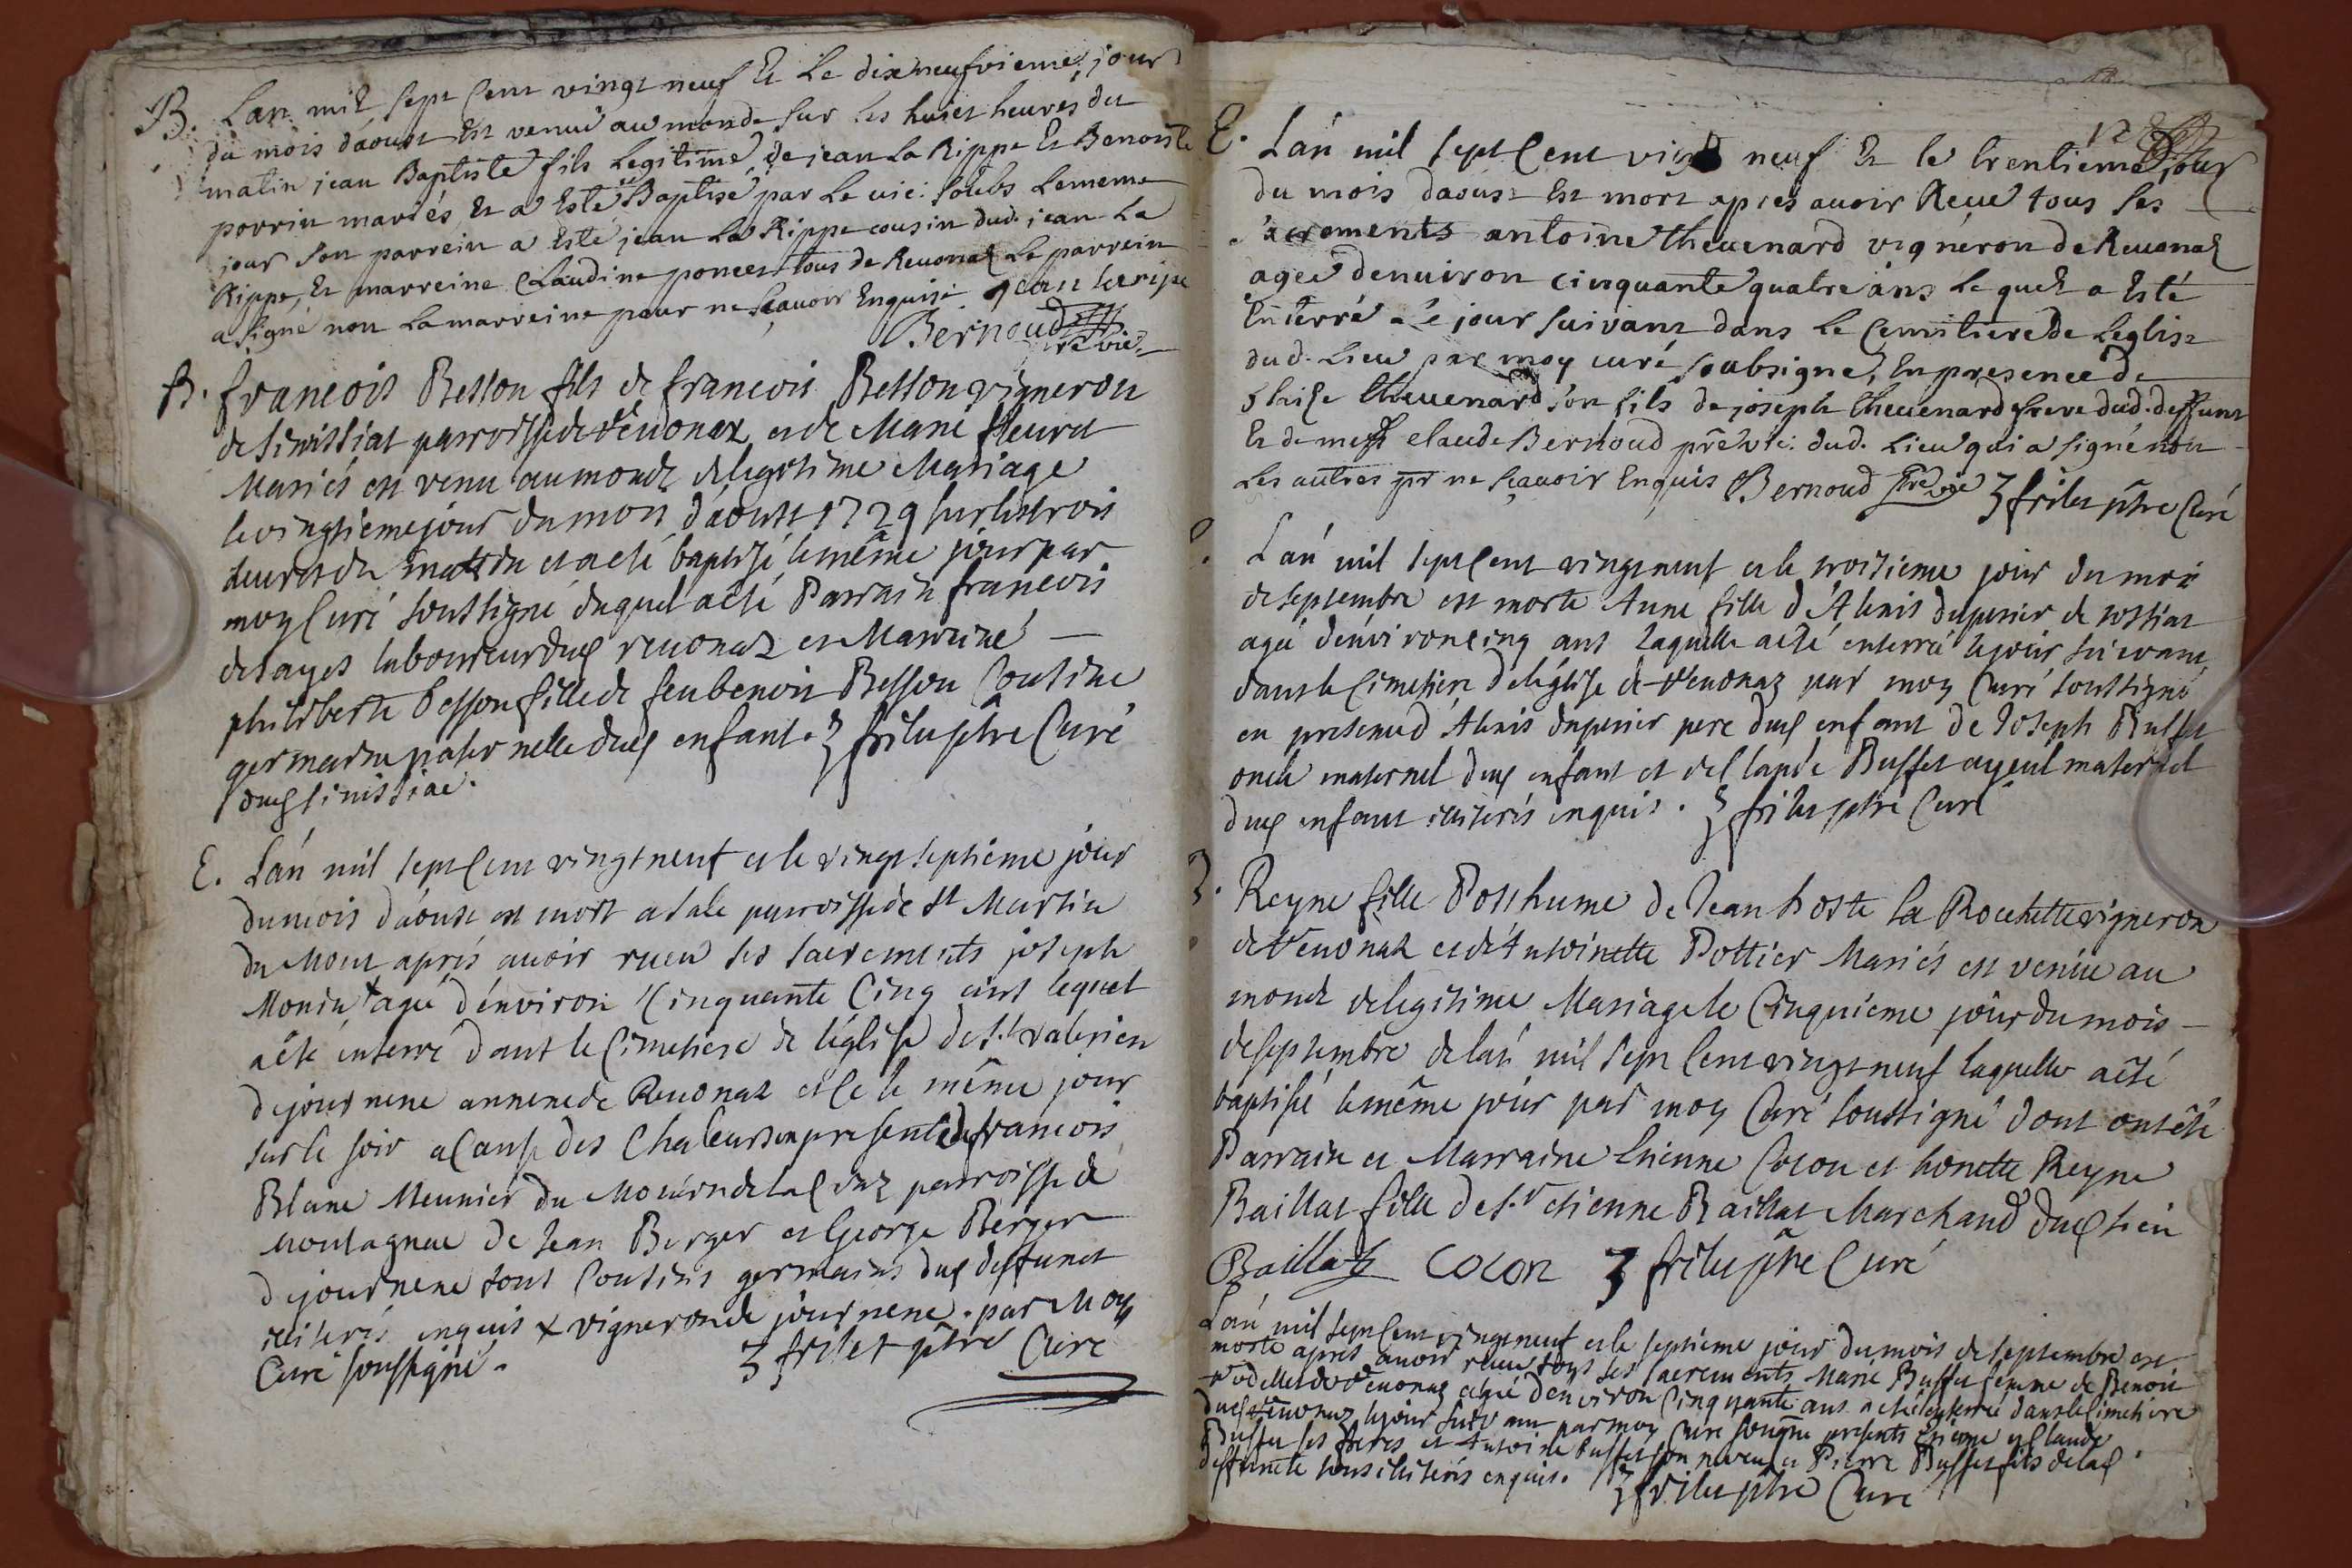 B. Lan mil sept cent vingt neuf Et Le dixneufvieme jour
du mois daoust Est venu au monde sur les huict heures du
matin jean Baptiste fils Legitime de jean La Rippe Et Benoiste
porrin mariés Et a Esté Baptisé par Le vic: soubs Lememe
jour son parrein a Esté jean La Rippe cousin dud. jean La
Rippe, Et marreine Claudine poncet tous de Reuonaz Le parrein
a signé non La marreine pour ne sçauoir Enquise jean laripe
Bernoud
pre vic.
B. francois Besson fils de francois Besson vigneron
de simissiat parroisse de reuonaz et de Marie fleuret
Mariés est venu au monde de legitime Mariage
le vingtieme jour du mois d'aoust 1729 sur les trois
heures du matin et a eté baptisé le même jour par
moy Curé soussigné duquel a eté Parrain francois
delayes laboureur dud reuonaz et Marreine
philiberte Besson fille de feu benoit Besson Cousine
germaine paternelle dud enfant. J frilet ptre Curé
dud simissiac.
E. L'an mil sept cent vingt neuf et le vingt septieme jour
du mois d'aoust est mort a la parroisse de st Martin
du Mont aprés auoir receu ses sacrements joseph
Monin + agé d'environ Cinquante Cinq ans lequel
a eté enterré dans le Cimetiere de l'église de st valerien
de journene annexe de Reuonaz et Ce le même jour
sur le soir a Cause des Chaleurs en presente de francois
Blanc Meunier du Moulin de la paroisse de
montagnac de Jean Berger et George Berger
de journene tous Cousins germains dud deffunct
illiterés enquis + vigneron de journene. par Moy
Curé soussigné. J frilet ptre Curé
E. L'an mil sept Cent vingt neuf Et le trentieme jour
du mois daoust Est mort apres auoir Receu tous ses
sacrements antoine theuenard vigneron de Reuonaz
agee denuiron cinquante quatre ans Le quel a Esté
Enterré Le jour suivant dans Le Cemitiere de Leglise
dud. Lieu par moy curé soubsigné, En presence de
blaise theuenard son fils de joseph theuenard frere dud. deffunt
Et de mess claude Bernoud prê vic: dud. Lieu qui a signé non
Les autres pr ne sçauoir Enquis Bernoud pre vic J frilet ptre Curé
L'an mil sept Cent vingt neuf et le troisieme jour du mois
de septembre est morte Anne fille d'Alexis duperier de rossiat
agée d'environ cinq ans laquelle a eté enterrée le jour suivant
dans le Cimetiere de l'église de reuonaz par moy Curé soussigné
en presence d'Alexis duperier pere dud enfant de Joseph Buffet
oncle maternel dud enfant et de Claude Buffet ayeul maternel
dud enfant illiterés enquis. J frilet ptre Curé
B. Reyne fille Posthume de Jean hoste la Rochette vigneron
de reuonaz et de Antoinette Pottier Mariés est venüe au
monde de legitime Mariage le Cinquieme jour du mois
de septembre de l'an mil sept Cent vingt neuf laquelle a eté
baptisée le même jour par moy Curé soussigné dont ont été
Parrain et Marraine Etienne Cocon et honette Reyne
Baillat fille de sr etienne Baillat Marchand dud lieu
Baillat Cocon J frilet ptre Curé
L'an mil sept Cent vingt neuf et le septieme jour du mois de septembre est
morte aprés auoir receu tous ses sacrements Marie Buffet femme de Benoit
de reuonaz agée d'environ Cinquante ans a eté enterrée dans le Cimetiere
dud reuonaz le jour suivant par moy Curé soussigné presents Etienne et Claude
Buffet ses freres et Antoine buffet son neveu et Pierre Buffet fils de lad
deffuncte tous illiterés enquis. J frilet ptre Curé